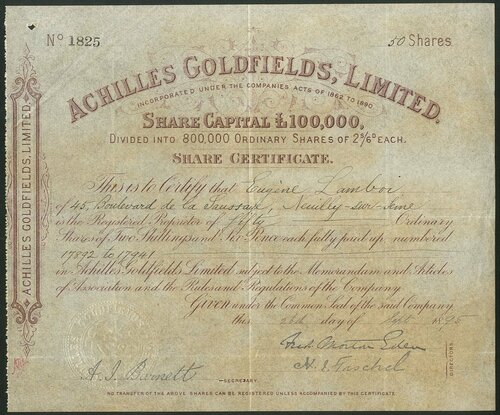 Nº 1825
50 Shares
ACHILLES GOLDFIELDS, LIMITED.
INCORPORATED UNDER THE COMPANIES ACTS OF 1862 TO 1890.
SHARE CAPITAL £100,000,
DIVIDED INTO 800,000 ORDINARY SHARES OF 2S/6D EACH.
SHARE CERTIFICATE.
This is to Certify that Eugène Lamboi
of 45, Boulevard de la Saussaye, Neuilly-sur-Seine
is the Registered Proprietor of fifty Ordinary
Shares of Two Shillings and Six Pence each fully paid up, numbered
17892 to 17941
in Achilles Goldfields Limited subject to the Memorandum and Articles
of Association and the Rules and Regulations of the Company.
GIVEN under the Common Seal of the said Company
this 26th day of Sept 1895
Fred Morton Eden
A. J. Burnett
DIRECTORS.
SECRETARY.
NO TRANSFER OF THE ABOVE SHARES CAN BE REGISTERED UNLESS ACCOMPANIED BY THIS CERTIFICATE.
ACHILLES GOLDFIELDS, LIMITED.